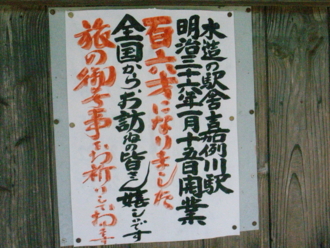 木造の駅舎嘉例川駅
明治三十六年一月十五日開業
百六才になりました。
全国からお訪ねの皆さん嬉しいです
旅の御無事をお祈りしております